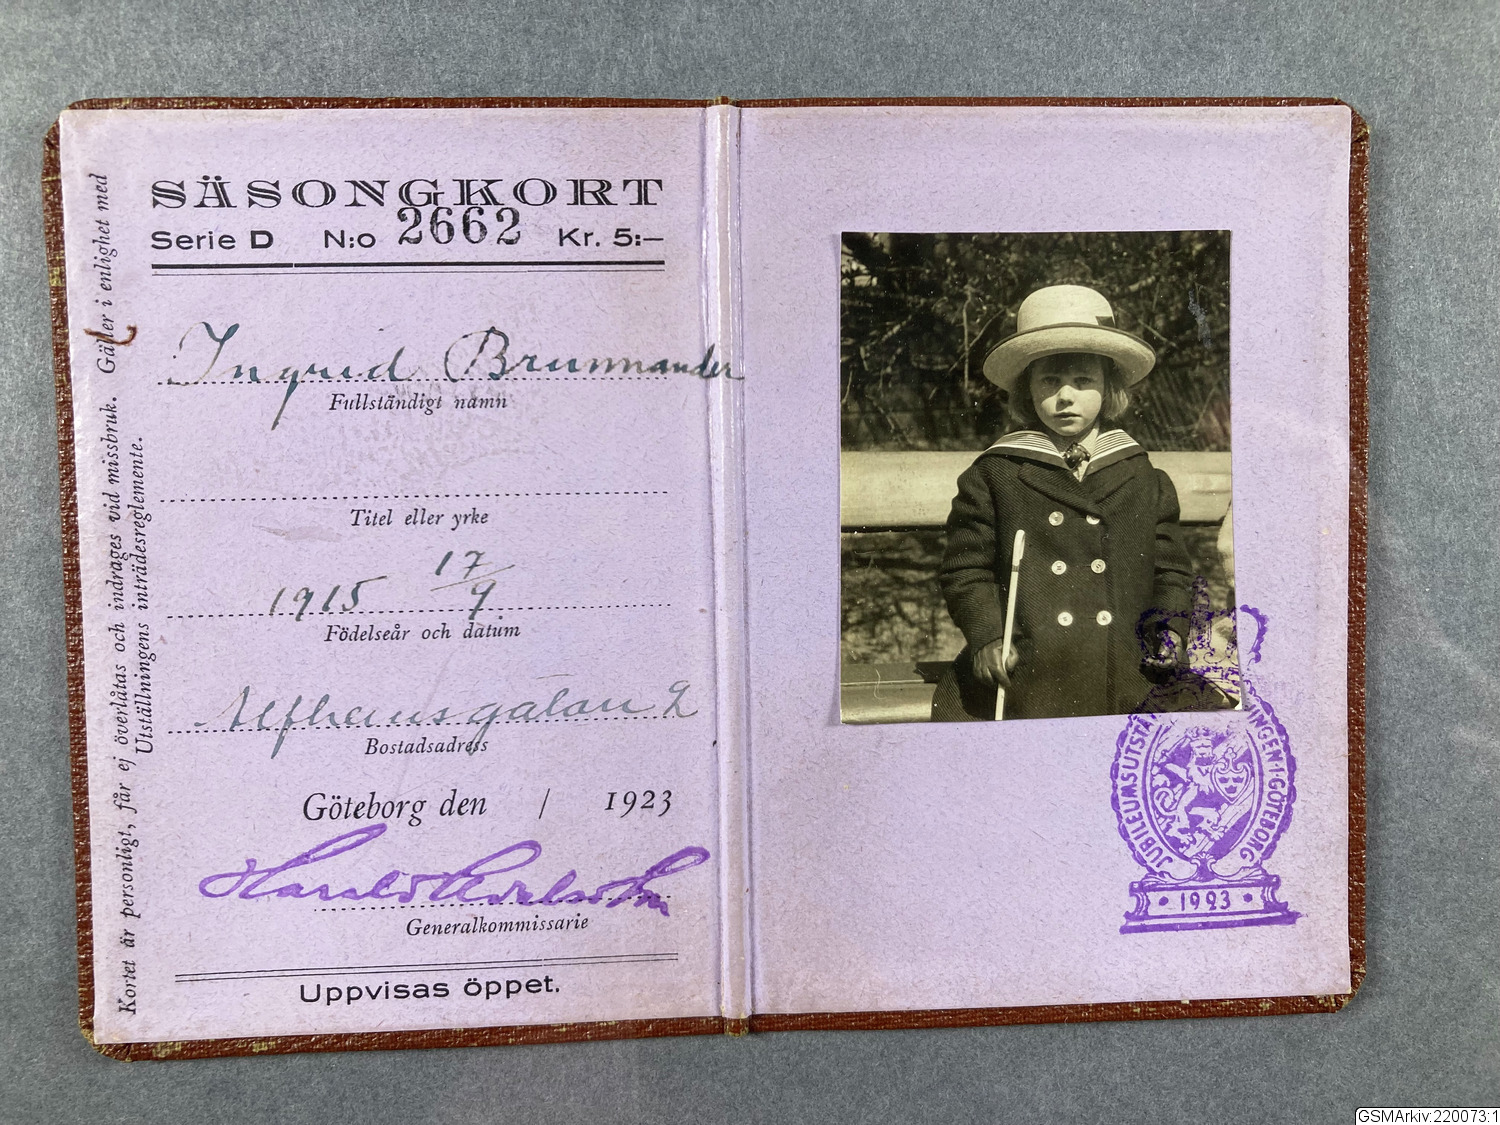 SÄSONGKORT
Serie D N:o 2662 Kr. 5:—
Ingrid Brunnander
Fullständigt namn
Titel eller yrke
1915 17/9
Födelseår och datum
2
Bostadsadress
Göteborg den / 1923
Generalkommissarie
Uppvisas öppet.
Kortet är personligt, får ej överlåtas och indrages vid missbruk. Gäller i enlighet med
Utställningens inträdesreglemente.
JUBILEUMSUTSTÄLLNINGEN·I·GÖTEBORG
• 1923 •
GSMArkiv:220073:1